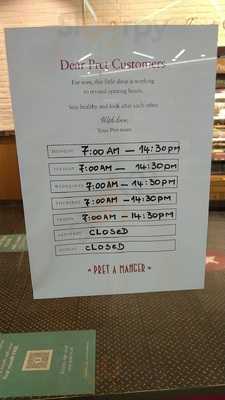 Dear Pret Customers
For now, this little shop is working
to revised opening hours.
Stay healthy and look after each other.
With love,
Your Pret team
MONDAY 7:00 AM — 14:30 pm
TUESDAY 7:00 AM — 14:30 pm
WEDNESDAY 7:00 AM — 14:30 pm
THURSDAY 7:00 AM — 14:30 pm
FRIDAY 7:00 AM — 14:30 pm
SATURDAY CLOSED
SUNDAY CLOSED
★ PRET A MANGER ★